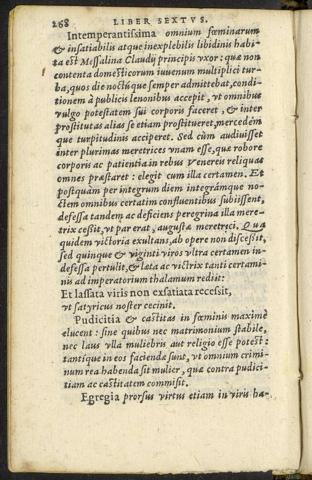 268 LIBER SEXTVS.
Intemperantissima omnium fœminarum
& insatiabilis atque inexplebilis libidinis habi-
ta est Messalina Claudij principis vxor: quæ non
contenta domesticorum iuuenum multiplici tur-
ba, quos die noctúque semper admittebat, condi-
tionem à publicis lenonibus accepit, vt omnibus
vulgo potestatem sui corporis faceret, & inter
prostitutas alias se etiam prostitueret, mercedém
que turpitudinis acciperet. Sed cùm audiuisset
inter plurimas meretrices vnam esse, quæ robore
corporis ac patientia in rebus venereis reliquas
omnes præstaret: elegit cum illa certamen. Et
postquam per integrum diem integrámque no-
ctem omnibus certatim confluentibus subiissent,
defessa tandem ac deficiens peregrina illa mere-
trix cessit, vt par erat, augustæ meretrici. Quæ
quidem victoria exultans, ab opere non discessit,
sed quinque & viginti viros vltra certamen in-
defessa pertulit, & læta ac victrix tanti certami-
nis ad imperatorium thalamum rediit:
Et lassata viris non exsatiata recessit,
vt satyricus noster cecinit.
Pudicitia & castitas in fœminis maximè
elucent: sine quibus nec matrimonium stabile,
nec laus vlla muliebris aut religio esse potest:
tantíque in eos facienda sunt, vt omnium crimi-
num rea habenda sit mulier, quæ contra pudici-
tiam ac castitatem commisit.
Egregia prorsus virtus etiam in viris ha-